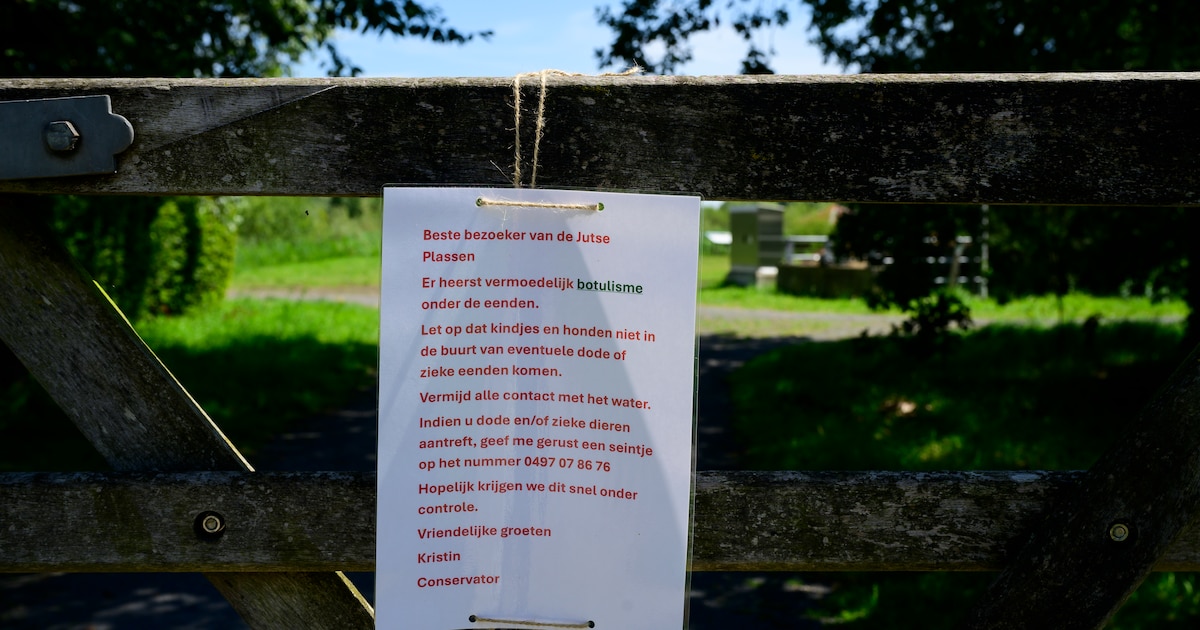 Beste bezoeker van de Jutse
Plassen
Er heerst vermoedelijk botulisme
onder de eenden.
Let op dat kindjes en honden niet in
de buurt van eventuele dode of
zieke eenden komen.
Vermijd alle contact met het water.
Indien u dode en/of zieke dieren
aantreft, geef me gerust een seintje
op het nummer 0497 07 86 76
Hopelijk krijgen we dit snel onder
controle.
Vriendelijke groeten
Kristin
Conservator